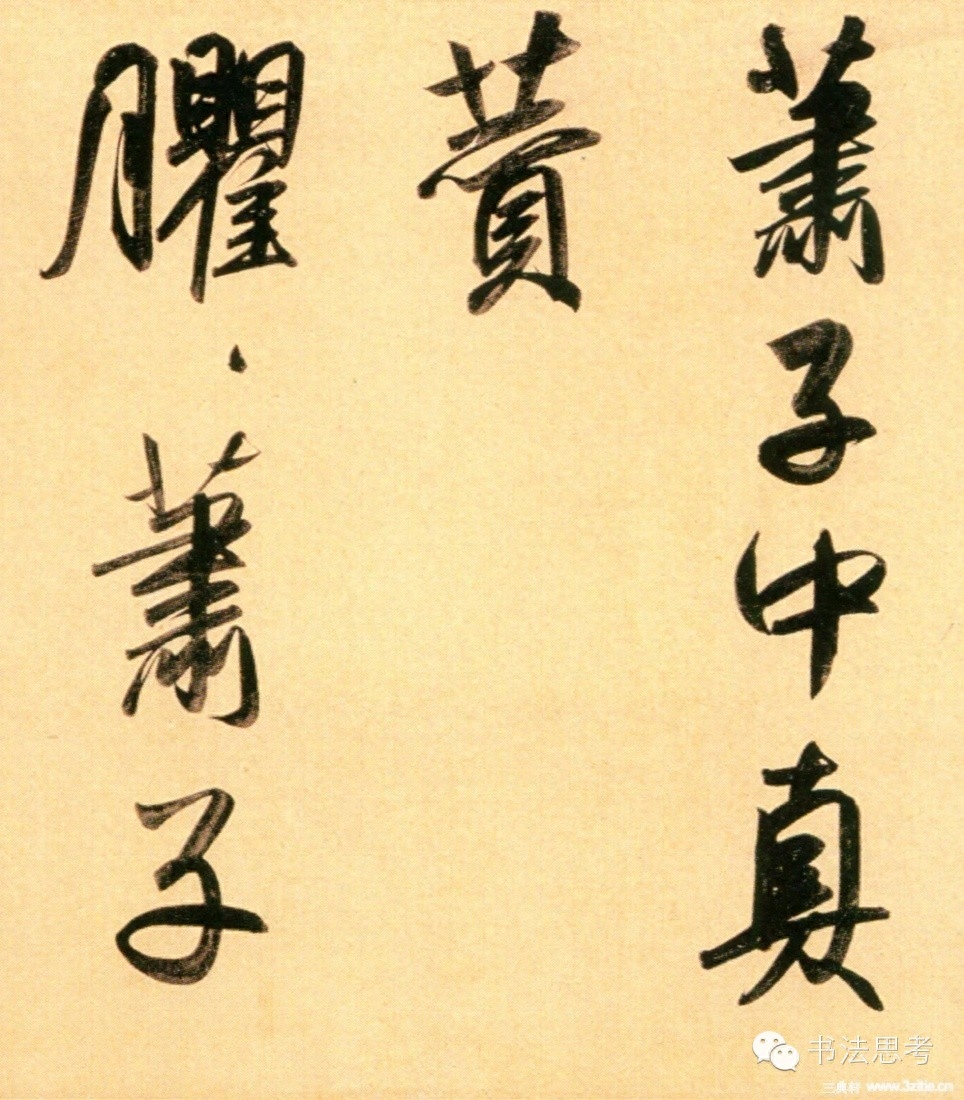 蕭子中真
賛
臞、蕭子
书法思考
三典轩 www.3zitie.cn